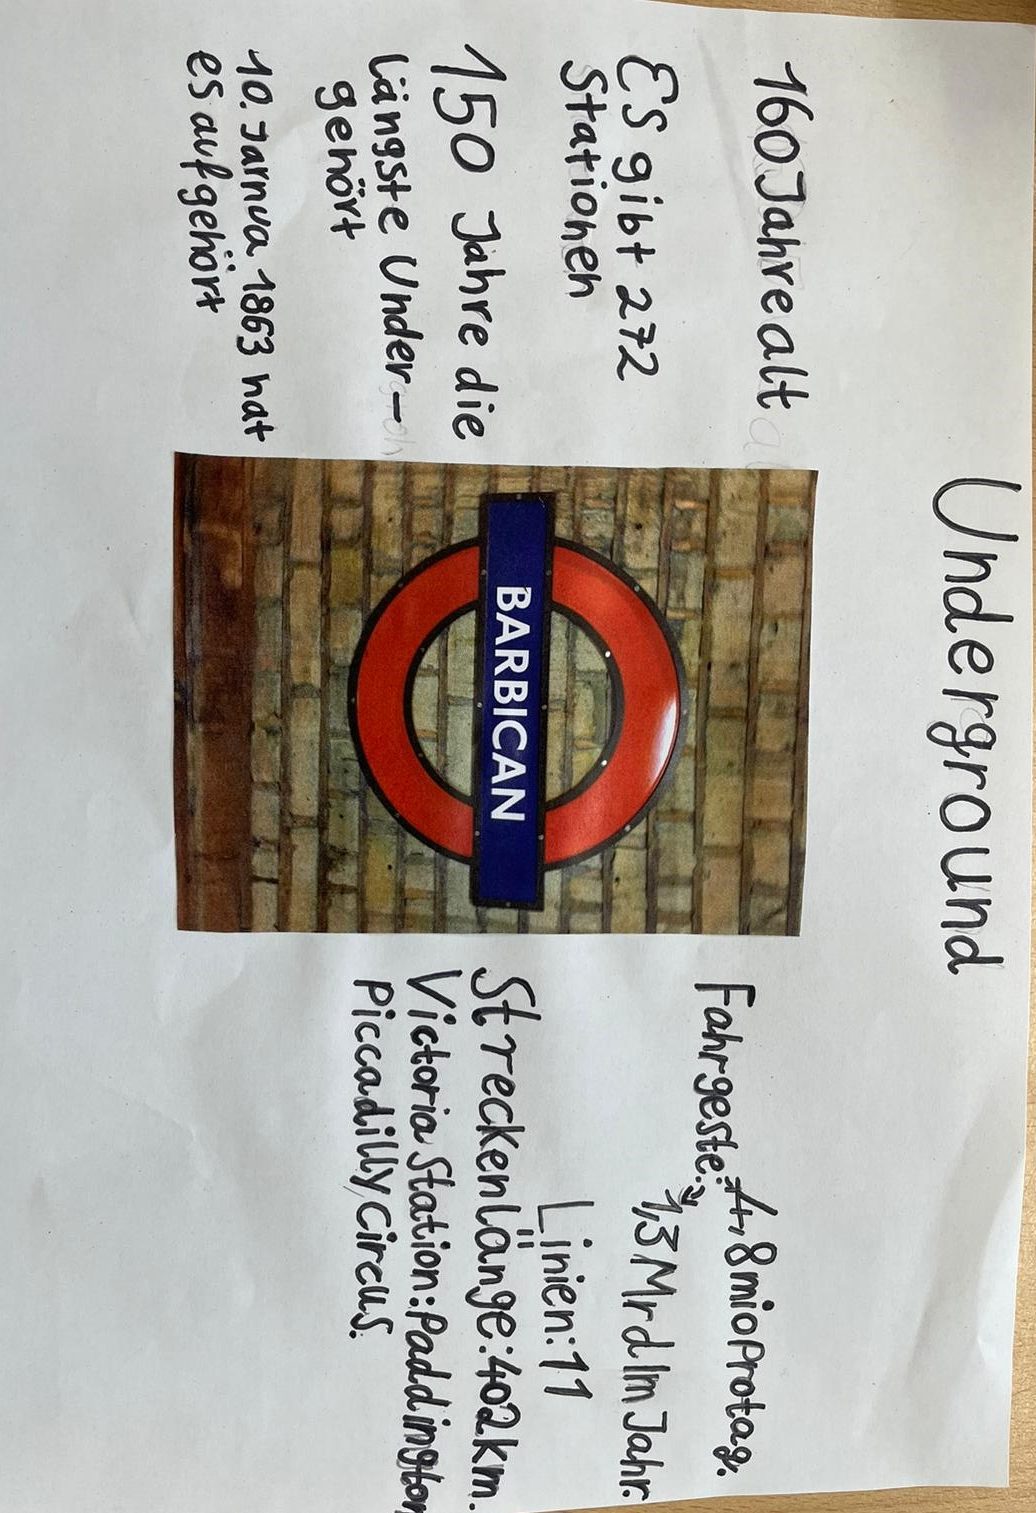 Underground
160 Jahre alt
Es gibt 272
Stationen
150 Jahre die
längste Under-
gehört
10. Jarnua 1863 hat
es aufgehört
BARBICAN
Fahrgeste: 4,8 mio pro tag.
1,3 Mrd Im Jahr.
Linien: 11
Streckenlänge: 402 km.
Victoria Station: Paddington
Piccadilly, Circus.